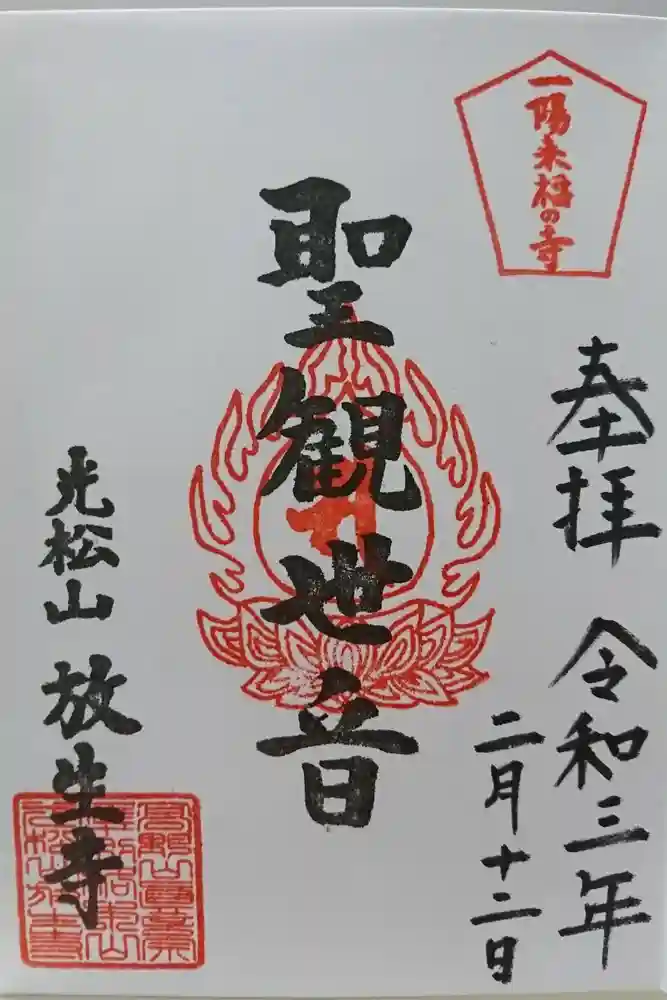 一陽来福の寺
奉拝
令和三年
二月十二日
聖観世音
光松山
放生寺